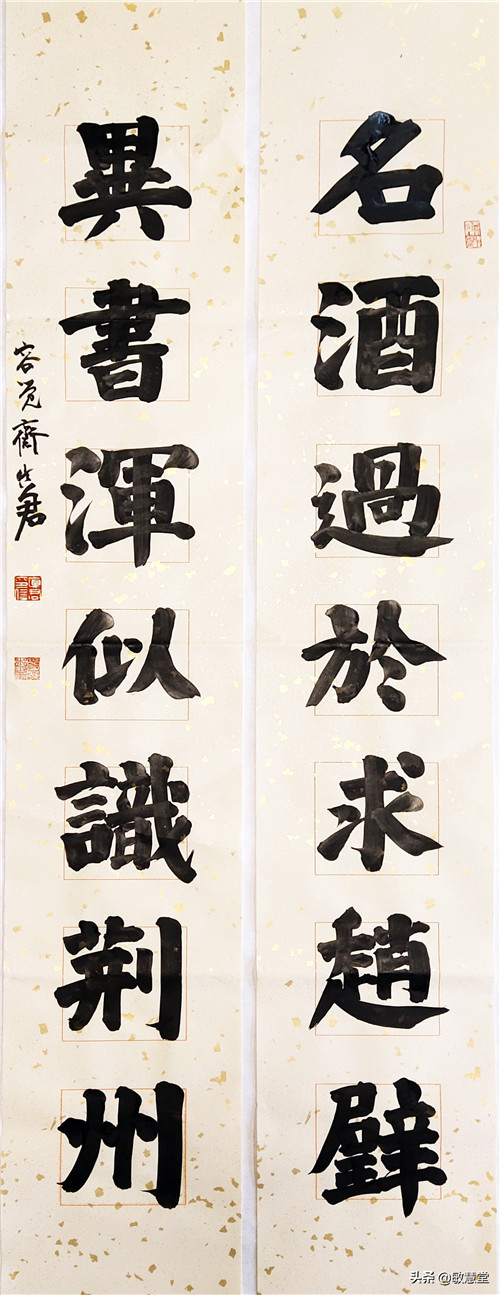 名酒過於求趙璧
異書渾似識荊州
容覺齋
頭条 @敏慧堂